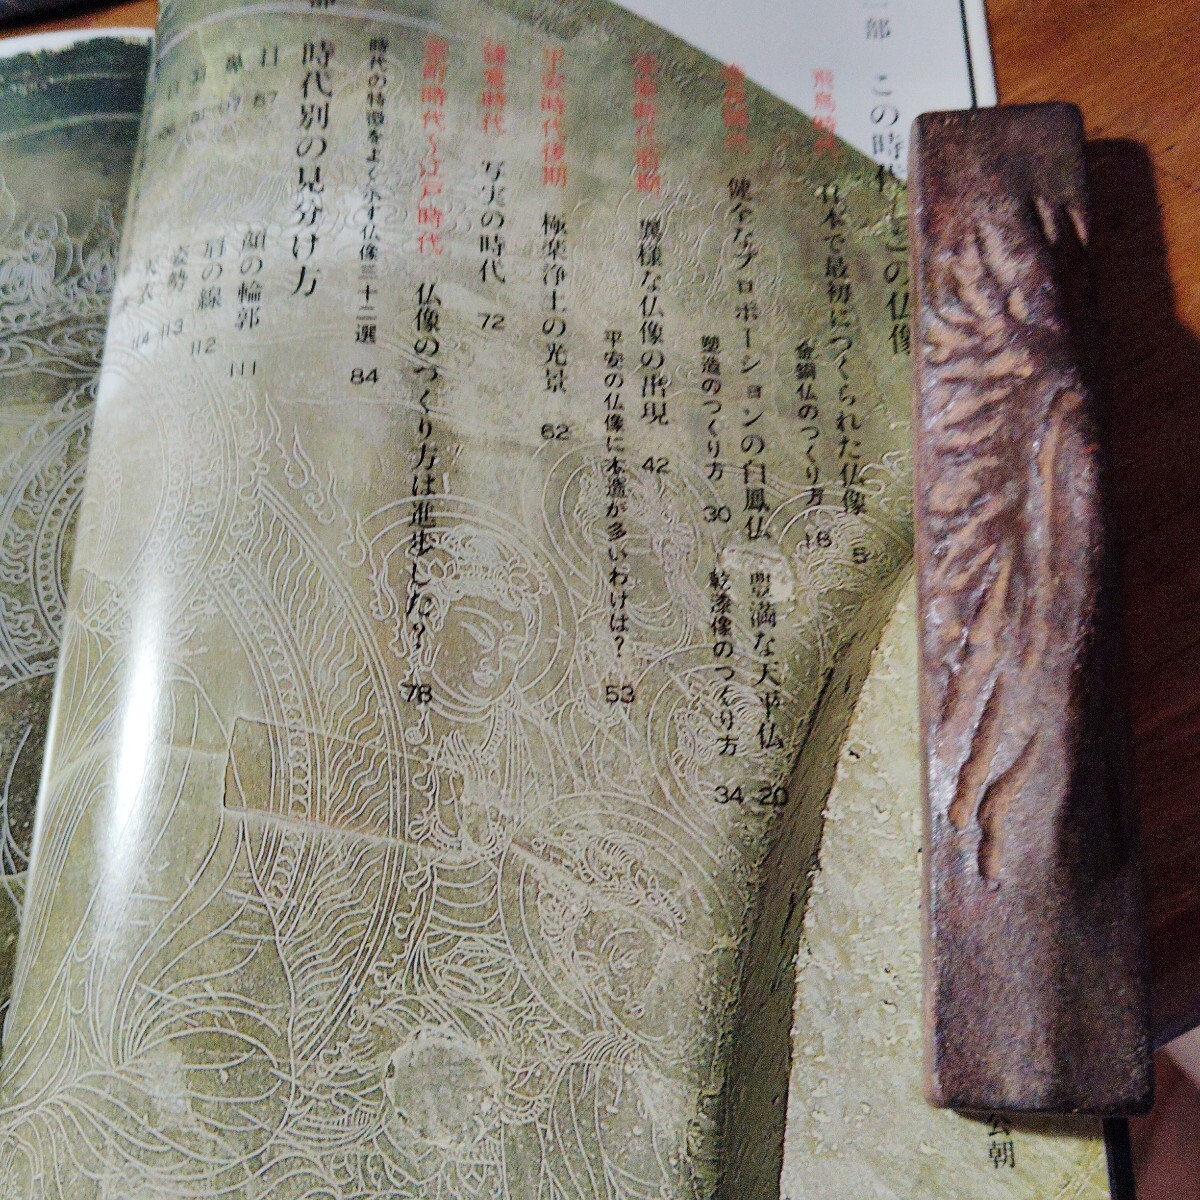 一部 この時代 この仏像
飛鳥時代 日本で最初につくられた仏像 5
金銅仏のつくり方 18
健全なプロポーションの白鳳仏 豊満な天平仏 20
塑造のつくり方 30 乾漆像のつくり方 34
平安時代前期 異様な仏像の出現 42
平安の仏像に木造が多いわけは? 53
平安時代後期 極楽浄土の光景 62
鎌倉時代 写実の時代 72
室町時代〜江戸時代 仏像のつくり方は進歩した? 78
時代の特徴をよく示す仏像三十二選 84
時代別の見分け方
目 87 顔の輪郭 111
鼻 97 肩の線 112
姿勢 113
114
公朝